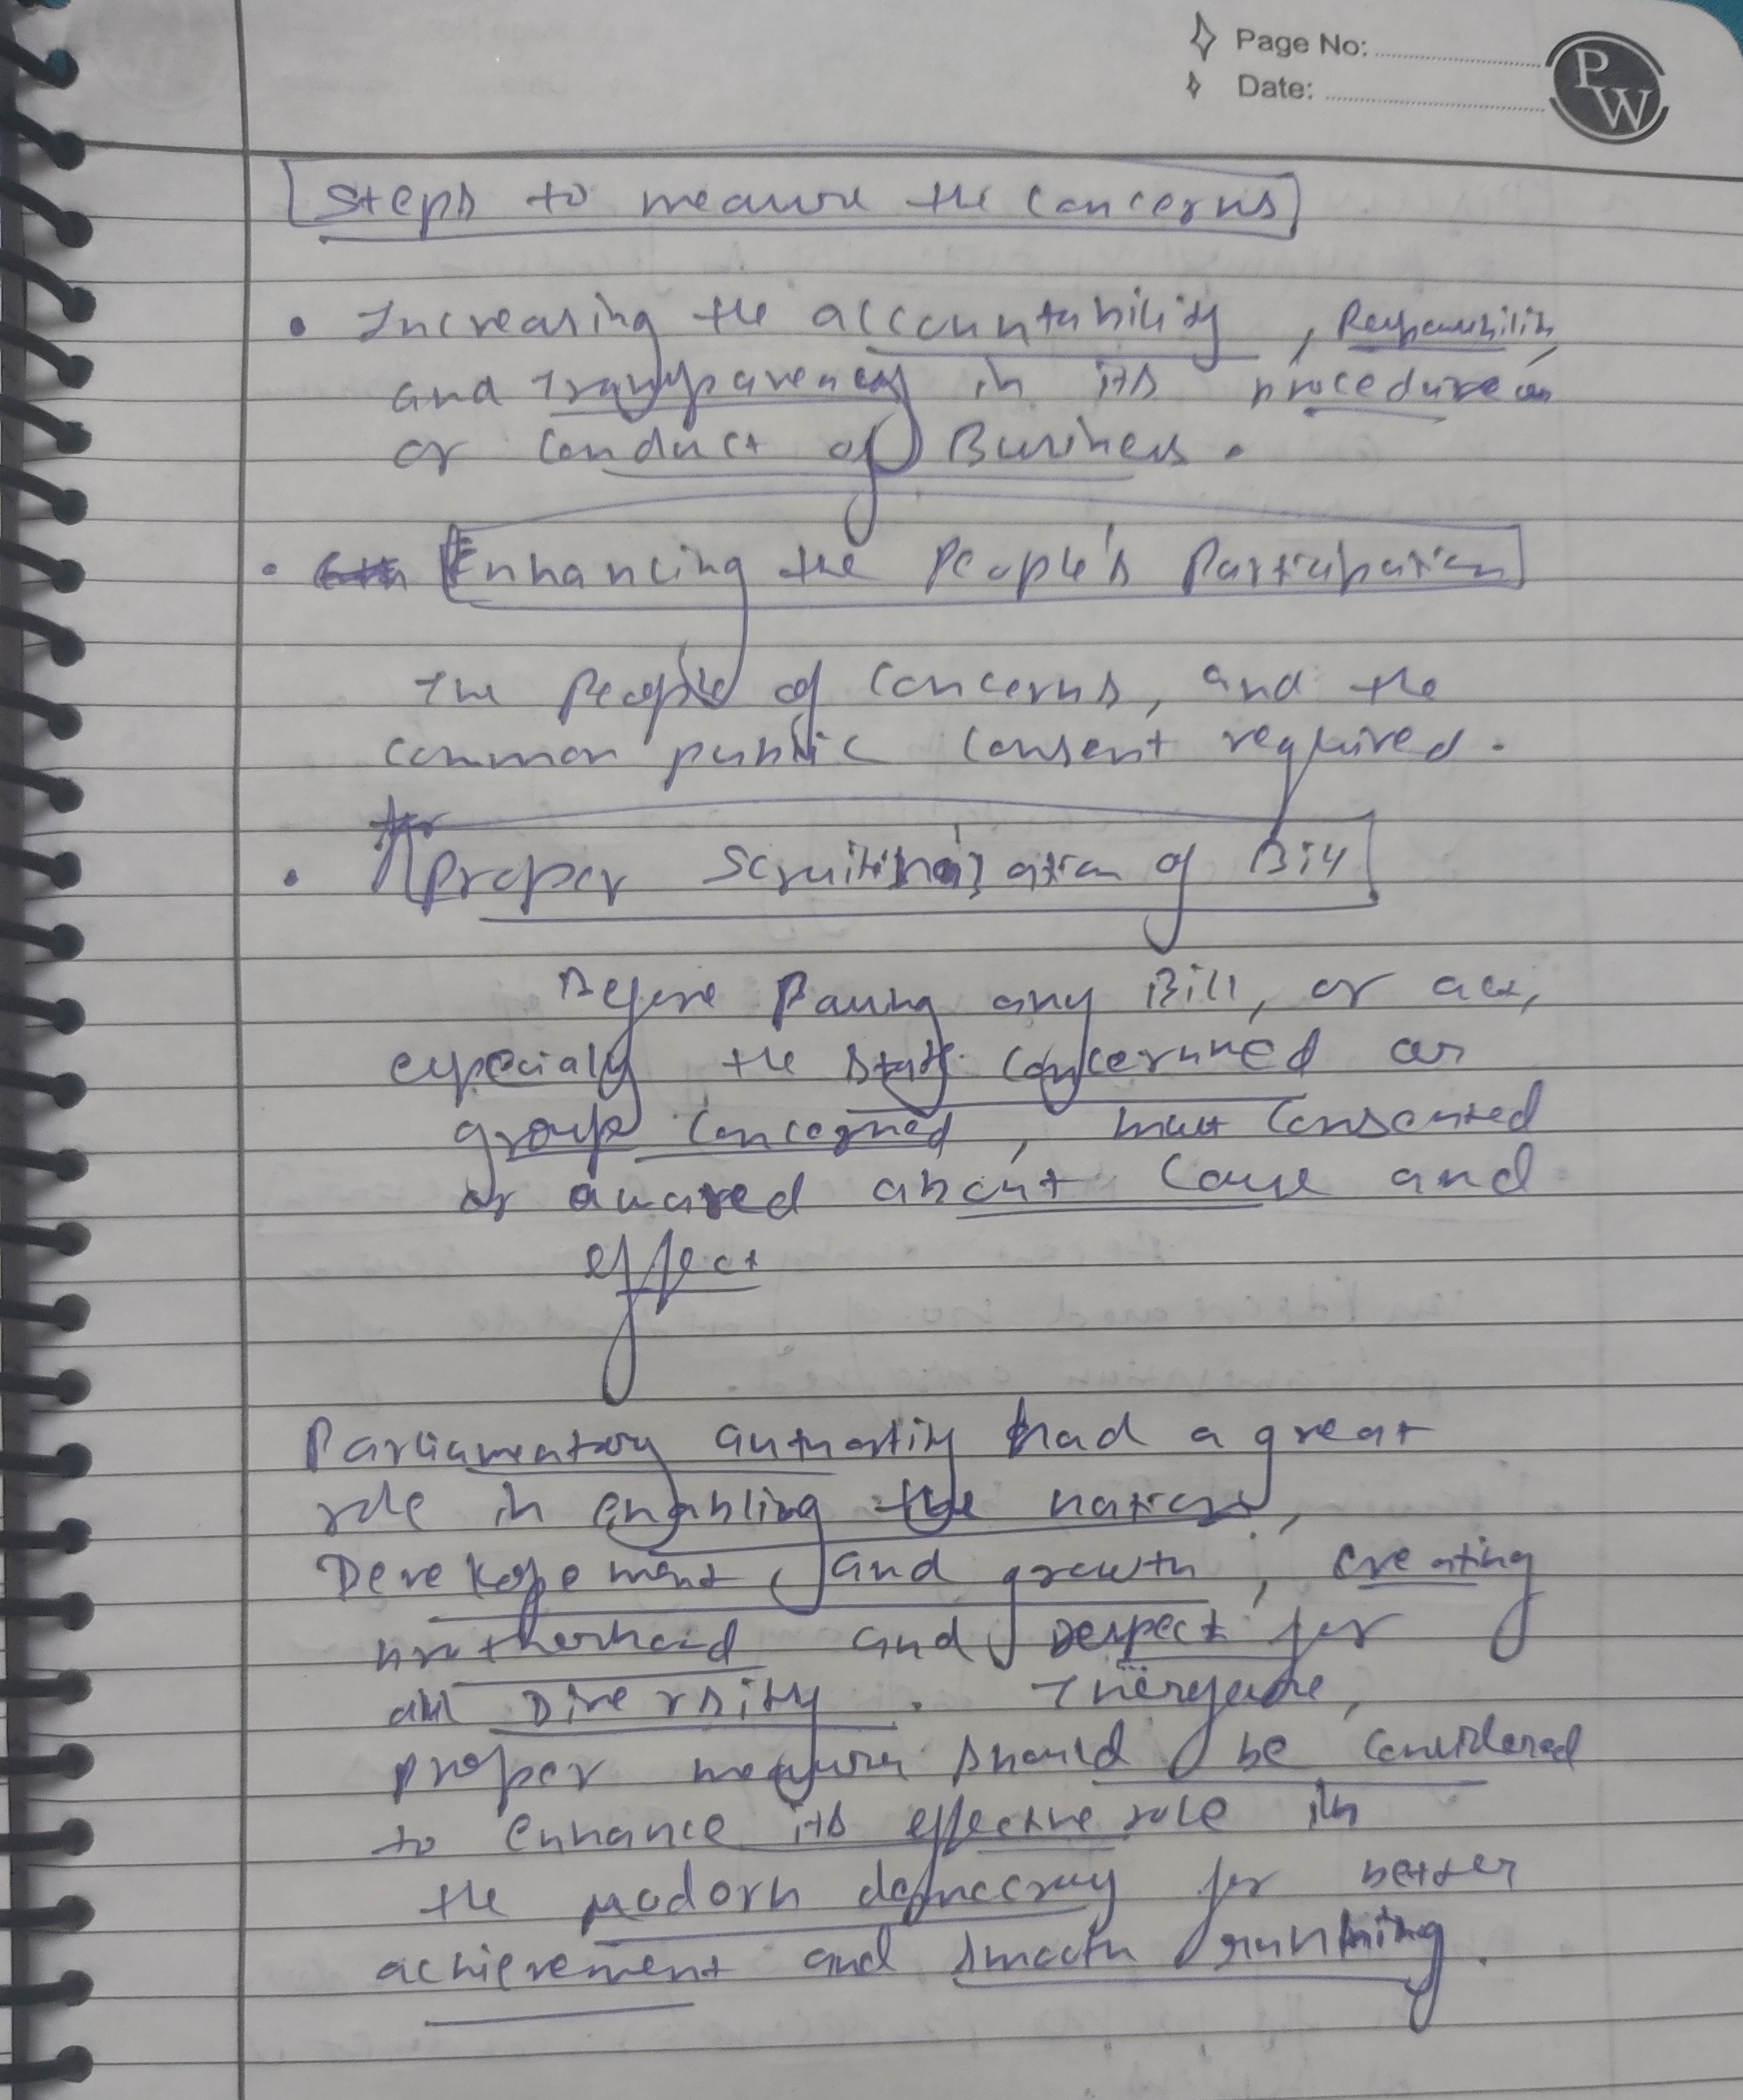 Page No:
Date:
PW
Steps to measure the Concerns
• Increasing the accountability, Responsibility,
and transparency in its procedure
or Conduct of Business.
• Enhancing the People's Participation
The People of Concerns, and the
common public Consent required.
• Proper Scruitinization of Bill
Before Passing any Bill, or act,
especialy the state concernned or
group concerned, must Consented
or awared about Cause and
effect
Parliamentary authority had a great
role in enabling the nation,
Developement and growth, creating
brotherhood and respect for
all Diversity. Therefore,
proper measures should be considered
to enhance its effective role in
the modorn democracy for better
achievement and smooth running.